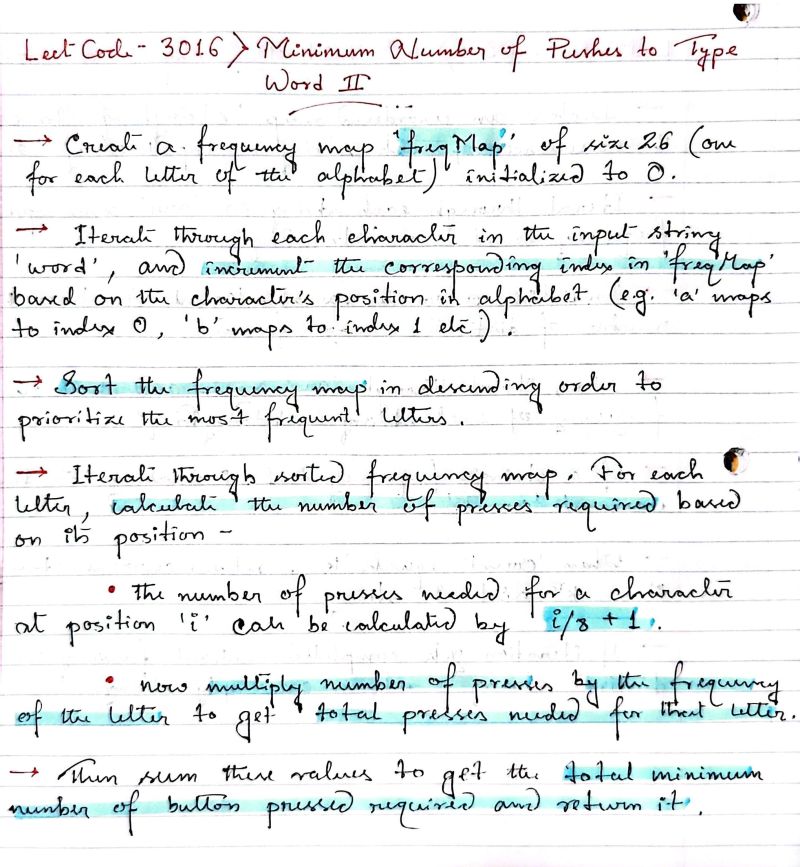 LeetCode - 3016 > Minimum Number of Pushes to Type
Word II
→ Create a frequency map 'freqMap' of size 26 (one
for each letter of the alphabet) initialized to 0.
→ Iterate through each character in the input string
'word', and increment the corresponding index in 'freqMap'
based on the character's position in alphabet (e.g. 'a' maps
to index 0, 'b' maps to index 1 etc).
→ Sort the frequency map in descending order to
prioritize the most frequent letters.
→ Iterate through sorted frequency map. For each
letter, calculate the number of presses required based
on its position -
• the number of presses needed for a character
at position 'i' can be calculated by i/8 + 1.
• now multiply number of presses by the frequency
of the letter to get total presses needed for that letter.
→ Then sum these values to get the total minimum
number of button pressed required and return it.